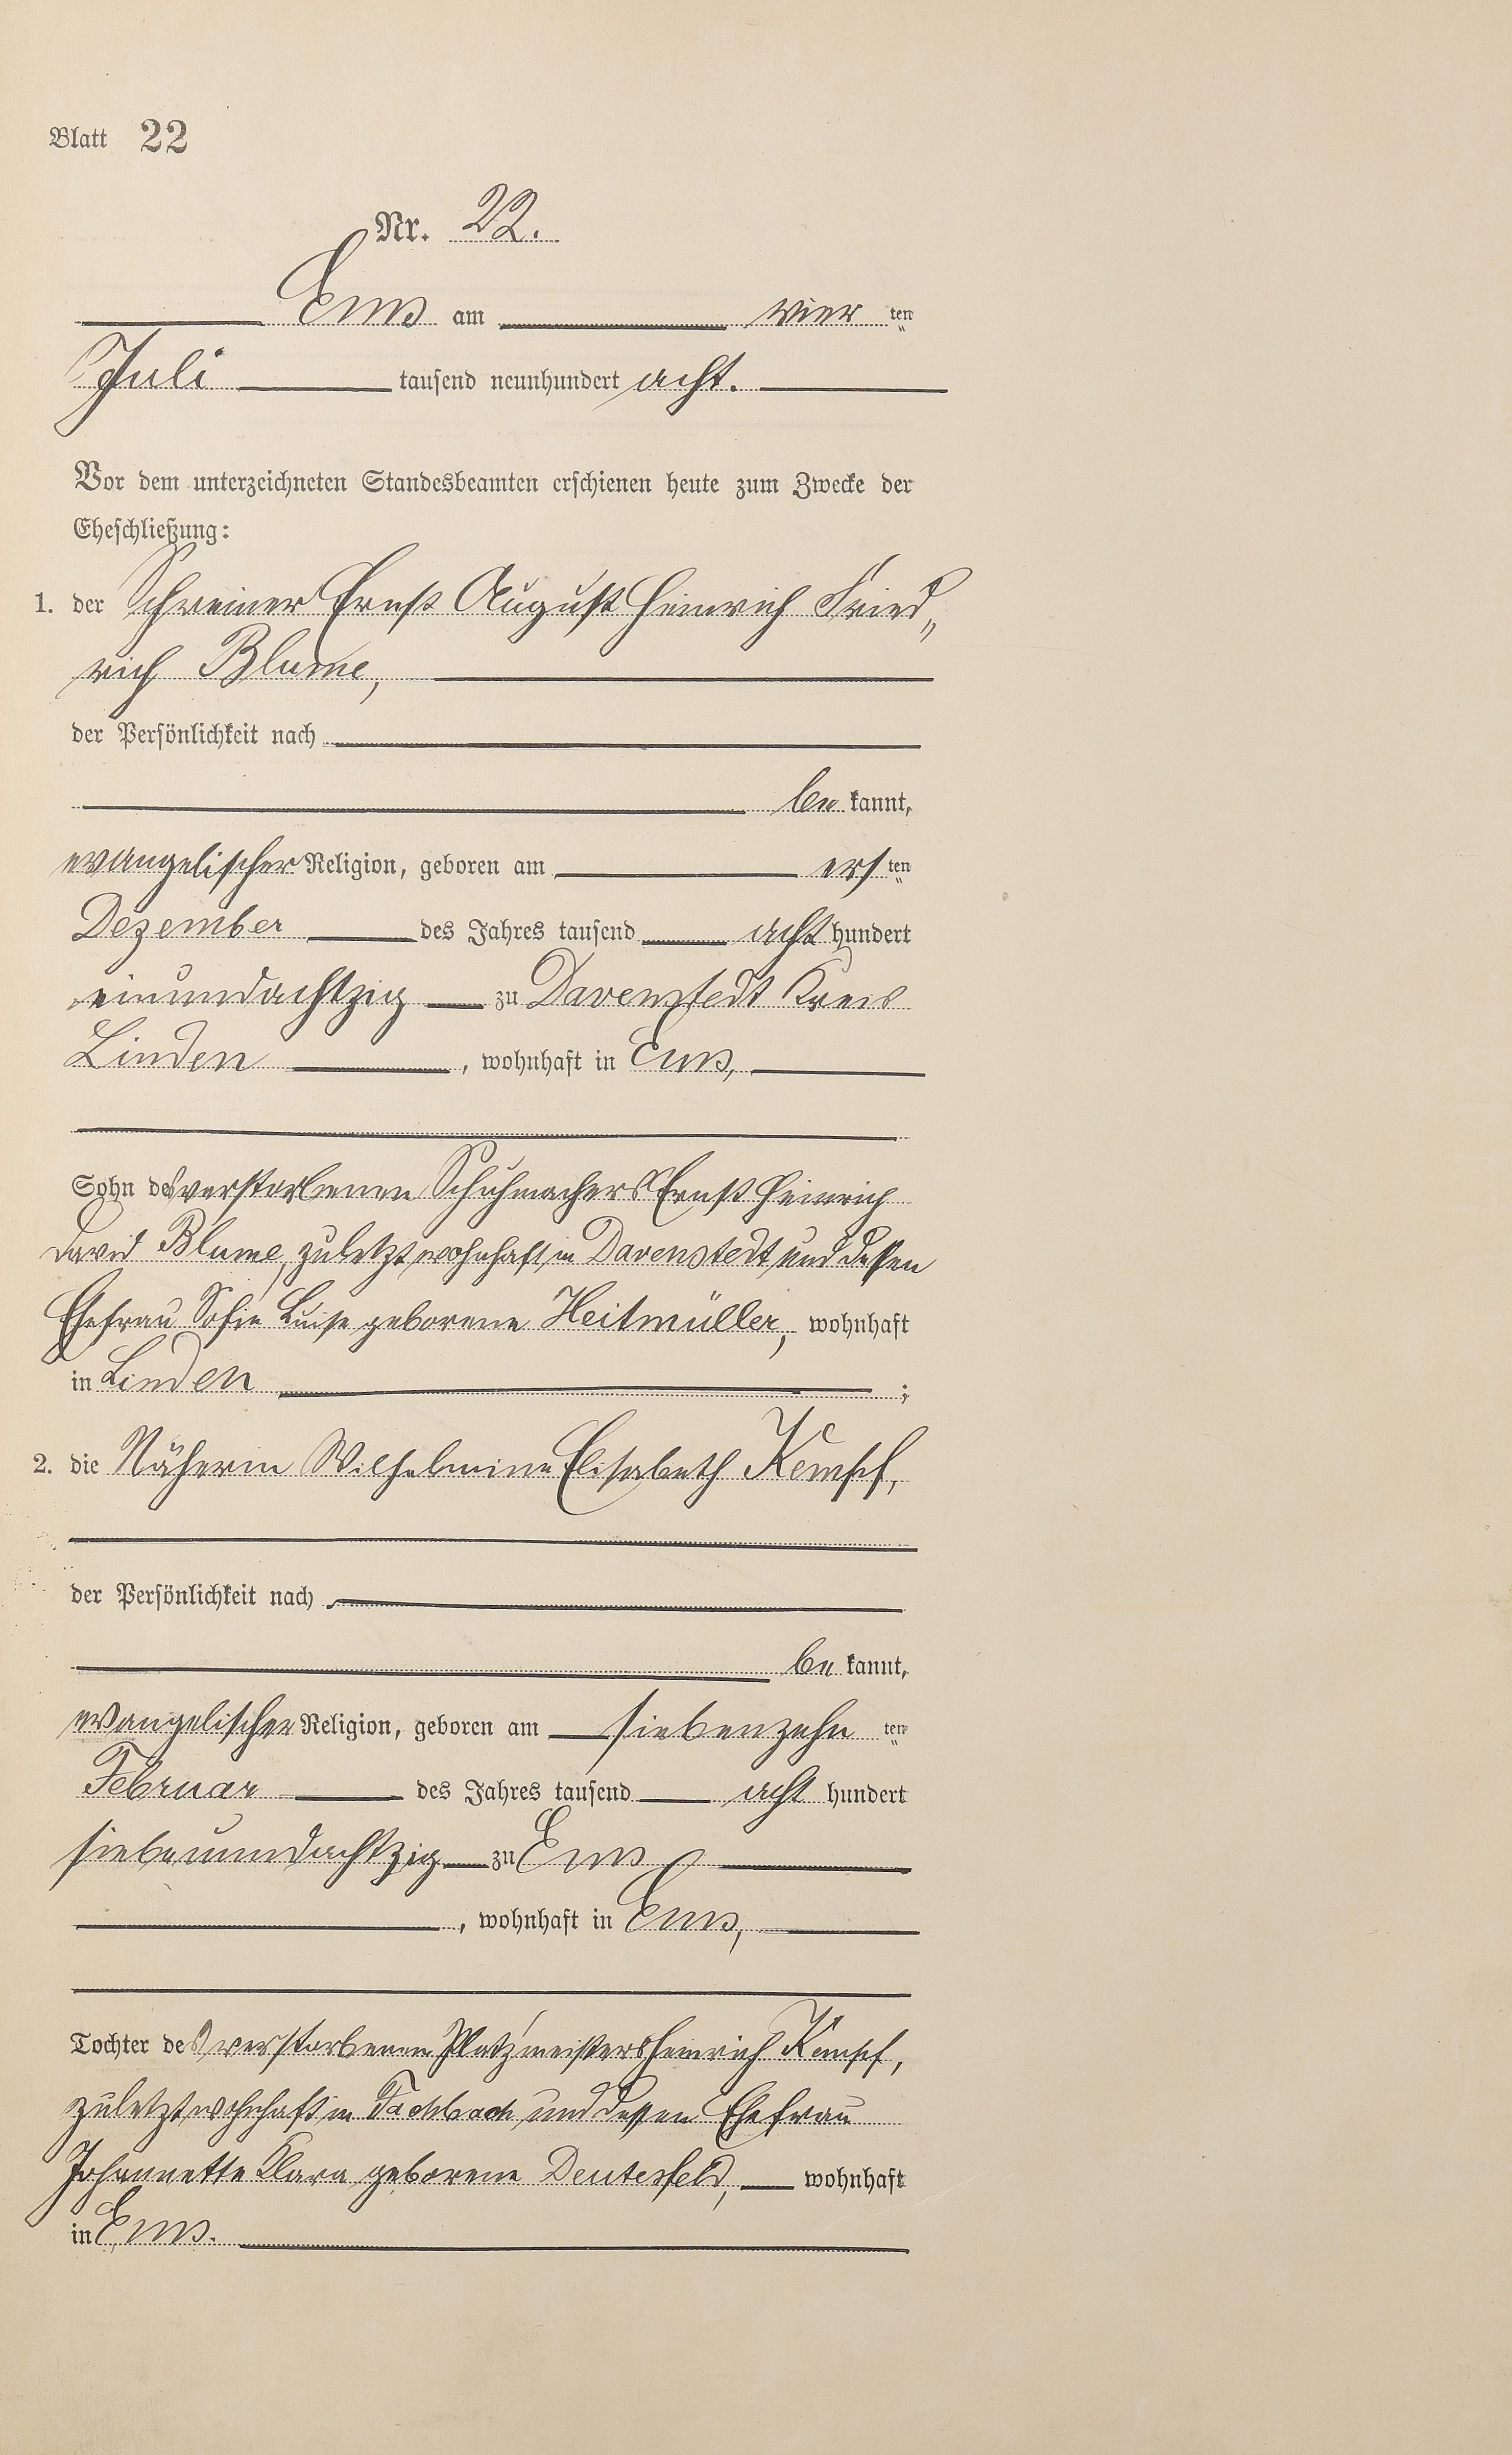 Blatt 22
Nr. 22.
Ems am vier ten
Juli tausend neunhundert acht.
Vor dem unterzeichneten Standesbeamten erschienen heute zum Zwecke der
Eheschließung:
1. der Schreiner Ernst August Heinrich Fried„
rich Blume,
der Persönlichkeit nach
be kannt,
evangelischer Religion, geboren am ers ten
Dezember des Jahres tausend acht hundert
einundachtzig zu Davenstedt Kreis
Linden , wohnhaft in Ems,
Sohn des verstorbenen Schuhmachers Ernst Heinrich
David Blume, zuletzt wohnhaft in Davenstedt und dessen
Ehefrau Sofie Luise geborene Heitmüller, wohnhaft
in Linden ;
2. die Näherin Wilhelmine Elisabeth Kempf,
der Persönlichkeit nach
be kannt,
evangelischer Religion, geboren am siebenzehn ten
Februar des Jahres tausend acht hundert
siebenundachtzig zu Ems
, wohnhaft in Ems,
Tochter des verstorbenen Platzmeisters Heinrich Kempf,
zuletzt wohnhaft in Fachbach und dessen Ehefrau
Johannette Klara geborene Deutesfeld, wohnhaft
in Ems.